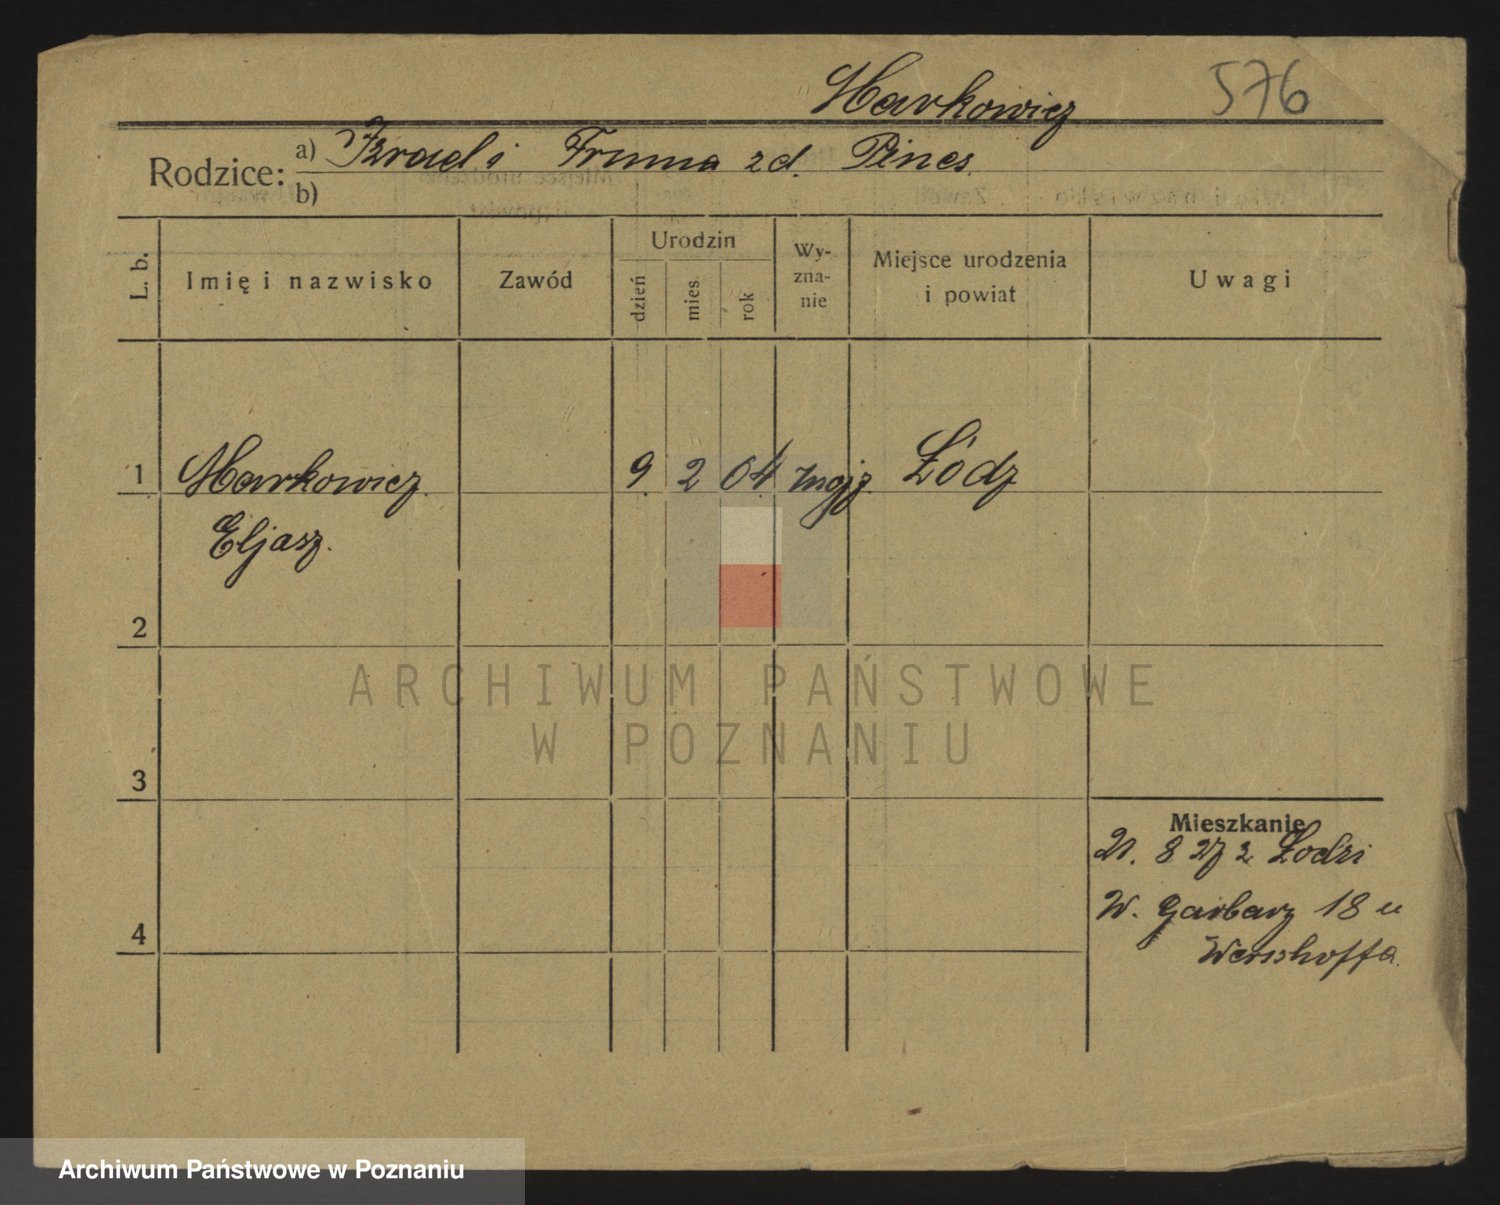 Markowicz 576
Rodzice: a) Izrael i Fruma zd. Pines
b)
L. b. Imię i nazwisko Zawód Urodzin dzień mies. rok Wy-zna-nie Miejsce urodzenia i powiat Uwagi
1 Markowicz 9 2 04 mojż. Łódz
Eljasz.
2
ARCHIWUM PAŃSTWOWE
W POZNANIU
3
Mieszkanie
21. 8 27 z Łodzi
W. Garbary 18 u
4
Archiwum Państwowe w Poznaniu